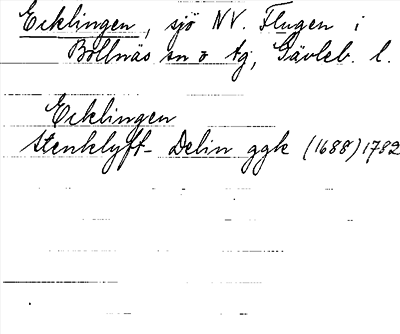 Ecklingen, sjö NV. Flugen i
Bollnäs sn o tg, Gävleb. l.
Ecklingen
Stenklyft- Delin ggk (1688) 1782